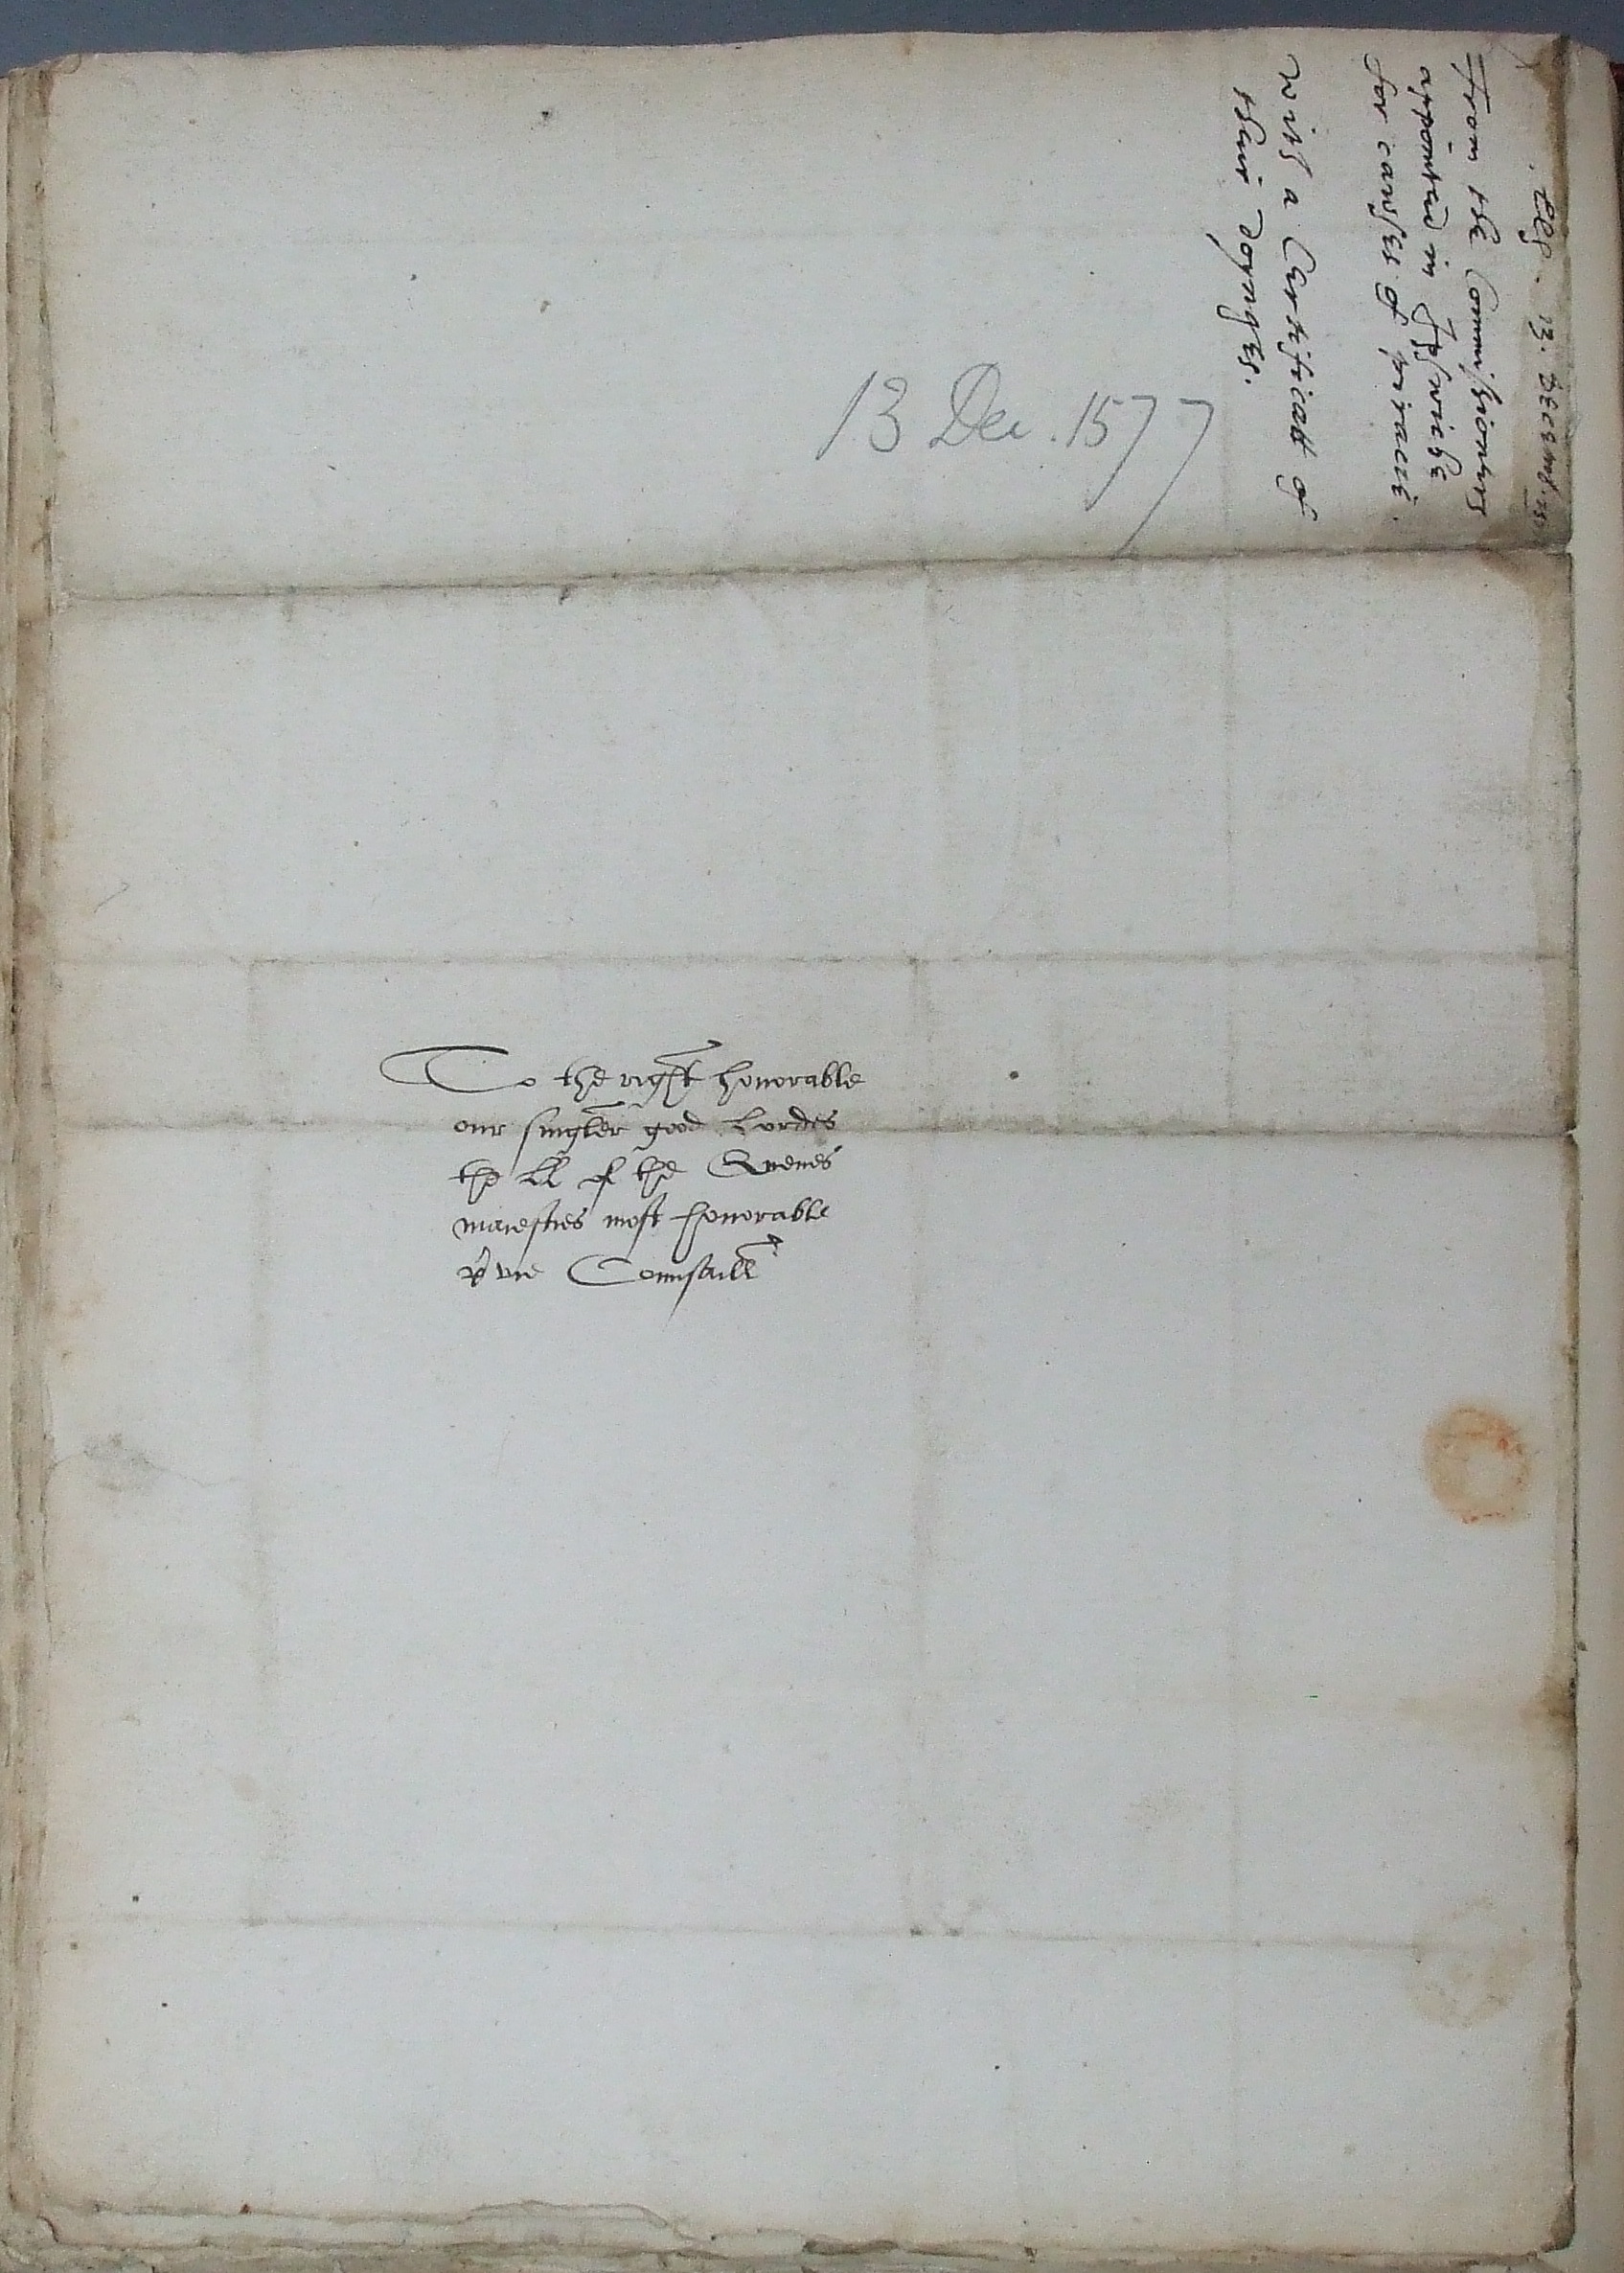 13. Decemb. 157
From the Commissioners
appointed in Ipswiche
for causes of piracie.
with a Certificatt of
their doynges.
13 Dec. 1577
To the right honorable
our singler good Lordes
the LL of the Quenes
maiesties most honorable
pryvie Counsaill